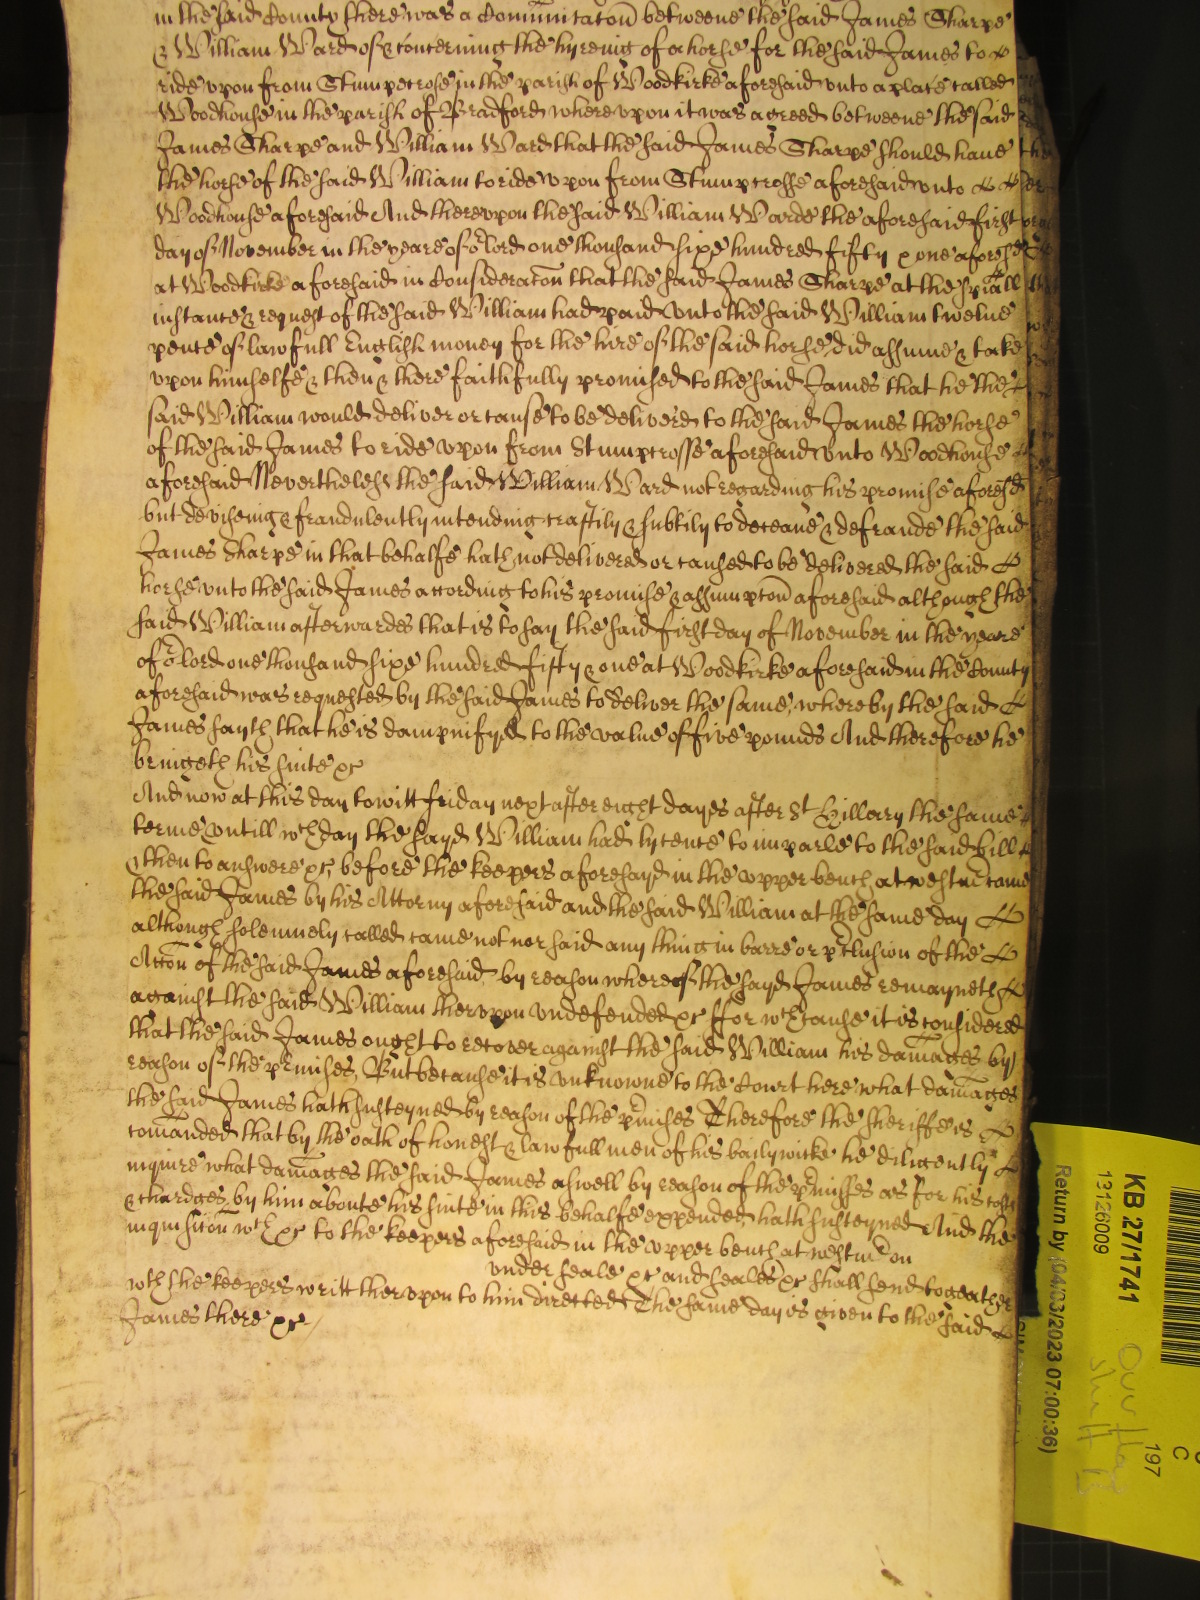 in the said County there was a Comunicacon betweene the said James Sharpe
& William Ward of & concerning the hyreing of a horse for the said James to
ride vpon from Stumpcrosse in the parish of Woodkirke aforesaid vnto a place called
Woodhouse in the parish of Bradford where vpon it was agreed betweene the said
James Sharpe and William Ward that the said James Sharpe should haue
the horse of the said William to ride vpon from Stumpcrosse aforesaid vnto
Woodhouse aforesaid And therevpon the said William Warde the aforesaid first
day of November in the yeare of or lord one thousand sixe hundred fifty & one aforesd
at Woodkirke aforesaid in Consideracon that the said James Sharpe at the spiall
instance & request of the said William had paid vnto the said William twelue
pence of lawfull English money for the hire of the said horse did assume & take
vpon himselfe & then & there faithfully promised to the said James that he the
said William would deliver or cause to be deliverd to the said James the horse
of the said James to ride vpon from Stumpcrosse aforesaid vnto Woodhouse
aforesaid Neverthelesse the said William Ward not regarding his promise aforesd
but deviseing & fraudulently intending craftily & subtily to deceaue & defraude the said
James Sharpe in that behalfe hath not delivered or caused to be delivered the said
horse vnto the said James according to his promise & assumpcon aforesaid although the
said William afterwardes that is to say the said first day of November in the yeare
of or lord one thousand sixe hundred fifty & one at Woodkirke aforesaid in the County
aforesaid was requested by the said James to deliver the same, whereby the said
James sayth that he is dampnifyed to the value of five pounds And therefore he
bringeth his suite &c
And now at this day to witt friday next after eight dayes after St Hillary the same
terme vntill wch day the sayd William had lycence to imparle to the said bill
& then to answere &c, before the keepers aforesayd in the vpper bench at westmr came
the said James by his Attorny aforesaid and the said William at the same day
although solemnely called came not nor said any thing in barre or preclusion of the
Accon of the said James aforesaid, by reason whereof the sayd James remayneth
against the said William thervpon vndefended &c ffor wch cause it is considered
that the said James ought to recover against the said William his damages by
reason of the premises, But because it is vnknowne to the Court here what damages
the said James hath susteyned by reason of the premises Therefore the sheriffe is
comanded that by the oath of honest & lawfull men of his bailywicke he diligently
inquire what damages the said James aswell by reason of the premisses as for his costs
& chardges by him aboute his suite in this behalfe expended hath susteyned And the
inquisicon wch &c to the keepers aforesaid in the vpper bench at westmr on
under seale &c and seales &c shall send togeather
wth the keepers writt thervpon to him directed The same day is given to the said
James there &c
KB 27/1741
13126009
Return by (04/03/2023 07:00:36)
197
C